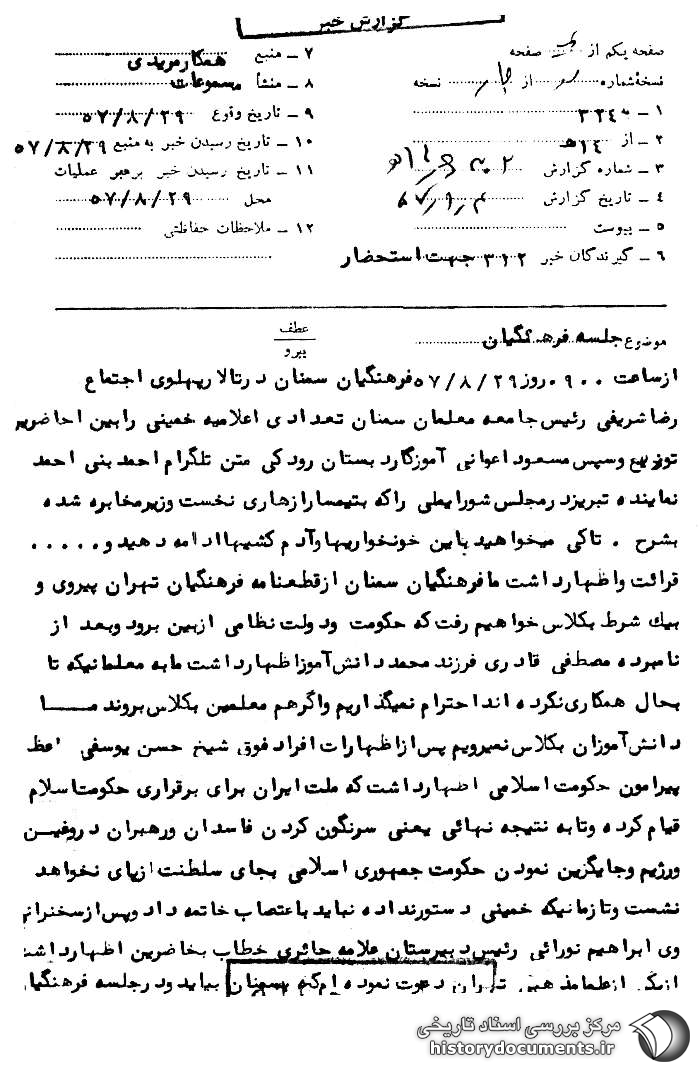 گزارش خبر
صفحه یکم از صفحه
نسخهٔ شماره از چهار نسخه
۱ ــ ۳۳۴۰
۲ ــ از ۱۴هـ
۳ ــ شماره گزارش
۴ ــ تاریخ گزارش ۵۷/۹/۴
۵ ــ پیوست
۶ ــ گیرندگان خبر ۳۱۲ جهت استحضار
۷ ــ منبع همکار مریدی
۸ ــ منشأ مسموعات
۹ ــ تاریخ وقوع ۵۷/۸/۲۹
۱۰ ــ تاریخ رسیدن خبر به منبع ۵۷/۸/۲۹
۱۱ ــ تاریخ رسیدن خبر برهبر عملیات
محل ۵۷/۸/۲۹
۱۲ ــ ملاحظات حفاظتی
موضوع جلسه فرهنگیان
عطف
پیرو
ازساعت ۰۹۰۰ روز ۵۷/۸/۲۹ فرهنگیان سمنان درتالارپهلوی اجتماع
رضاشریفی رئیس جامعه معلمان سمنان تعدادی اعلامیه خمینی رابین احاضرین
توزیع وسپس مسعود اعوانی آموزگاردبستان رودکی متن تلگرام احمد بنی احمد
نماینده تبریزدرمجلس شورایملی راکه بتیمسارازهاری نخست وزیرمخابره شده
بشرح . تاکی میخواهید باین خونخواریهاوآدم کشیهاادامه دهید و.....
قرائت واظهارداشت مافرهنگیان سمنان ازقطعنامه فرهنگیان تهران پیروی و
بیك شرط بکلاس خواهیم رفت که حکومت ودولت نظامی ازبین برود وبعد از
نامبرده مصطفی قادری فرزند محمد دانش آموزاظهارداشت مابه معلمانیکه تا
بحال همکاری نکرده اند احترام نمیگذاریم واگرهم معلمین بکلاس بروند مــا
دانش آموزان بکلاس نمیرویم پس ازاظهارات افراد فوق شیخ حسن یوسفی واعظ
پیرامون حکومت اسلامی اظهارداشت که ملت ایران برای برقراری حکومت اسلام
قیام کرده وتابه نتیجه نهائی یعنی سرنگون کردن فاسدان ورهبران دروغیــن
ورژیم وجایگزین نمودن حکومت جمهوری اسلامی بجای سلطنت ازپای نخواهد
نشست وتازمانیکه خمینی دستورنداده نباید باعتصاب خاتمه داد وپس ازسخنرانی
وی ابراهیم نورائی رئیس دبیرستان علامه حائری خطاب بحاضرین اظهارداشت
ازیکی ازعلما مذهبی تهران دعوت نموده ام که بسمنان بیاید ودرجلسه فرهنگیان
مرکز بررسی اسناد تاریخی
historydocuments.ir